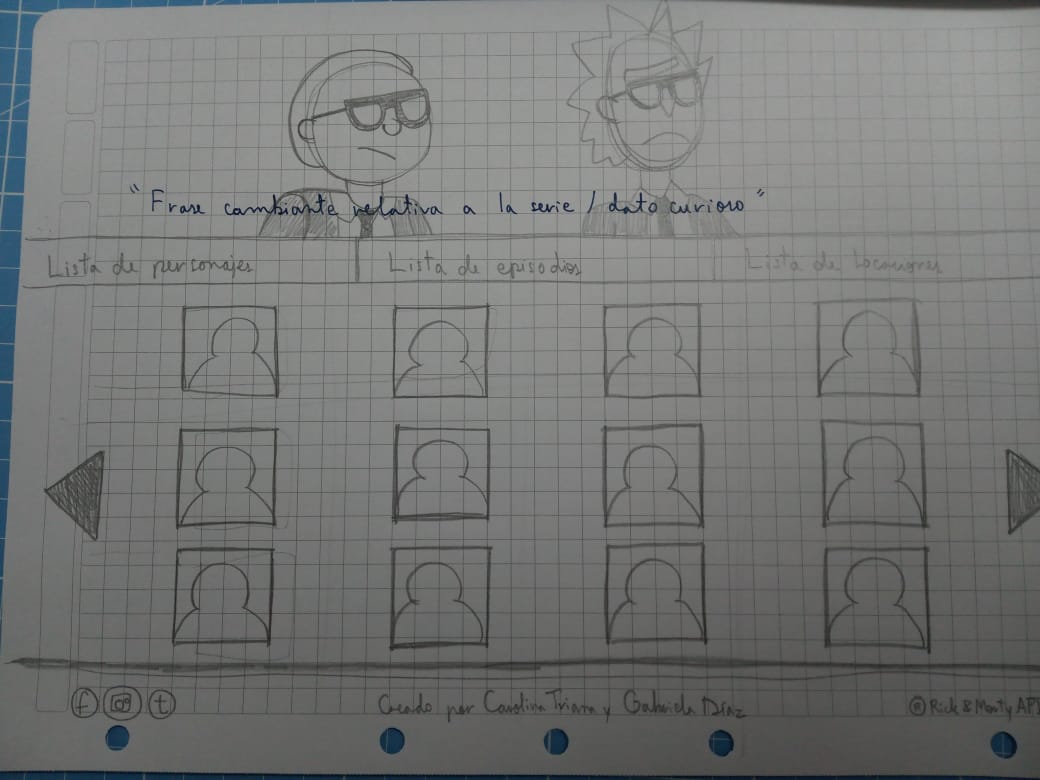 "Frase cambiante relativa a la serie / dato curioso"
Lista de personajes
Lista de episodios
Lista de locaciones
f
t
Creado por Carolina Triana y Gabriela Díaz
® Rick & Morty API